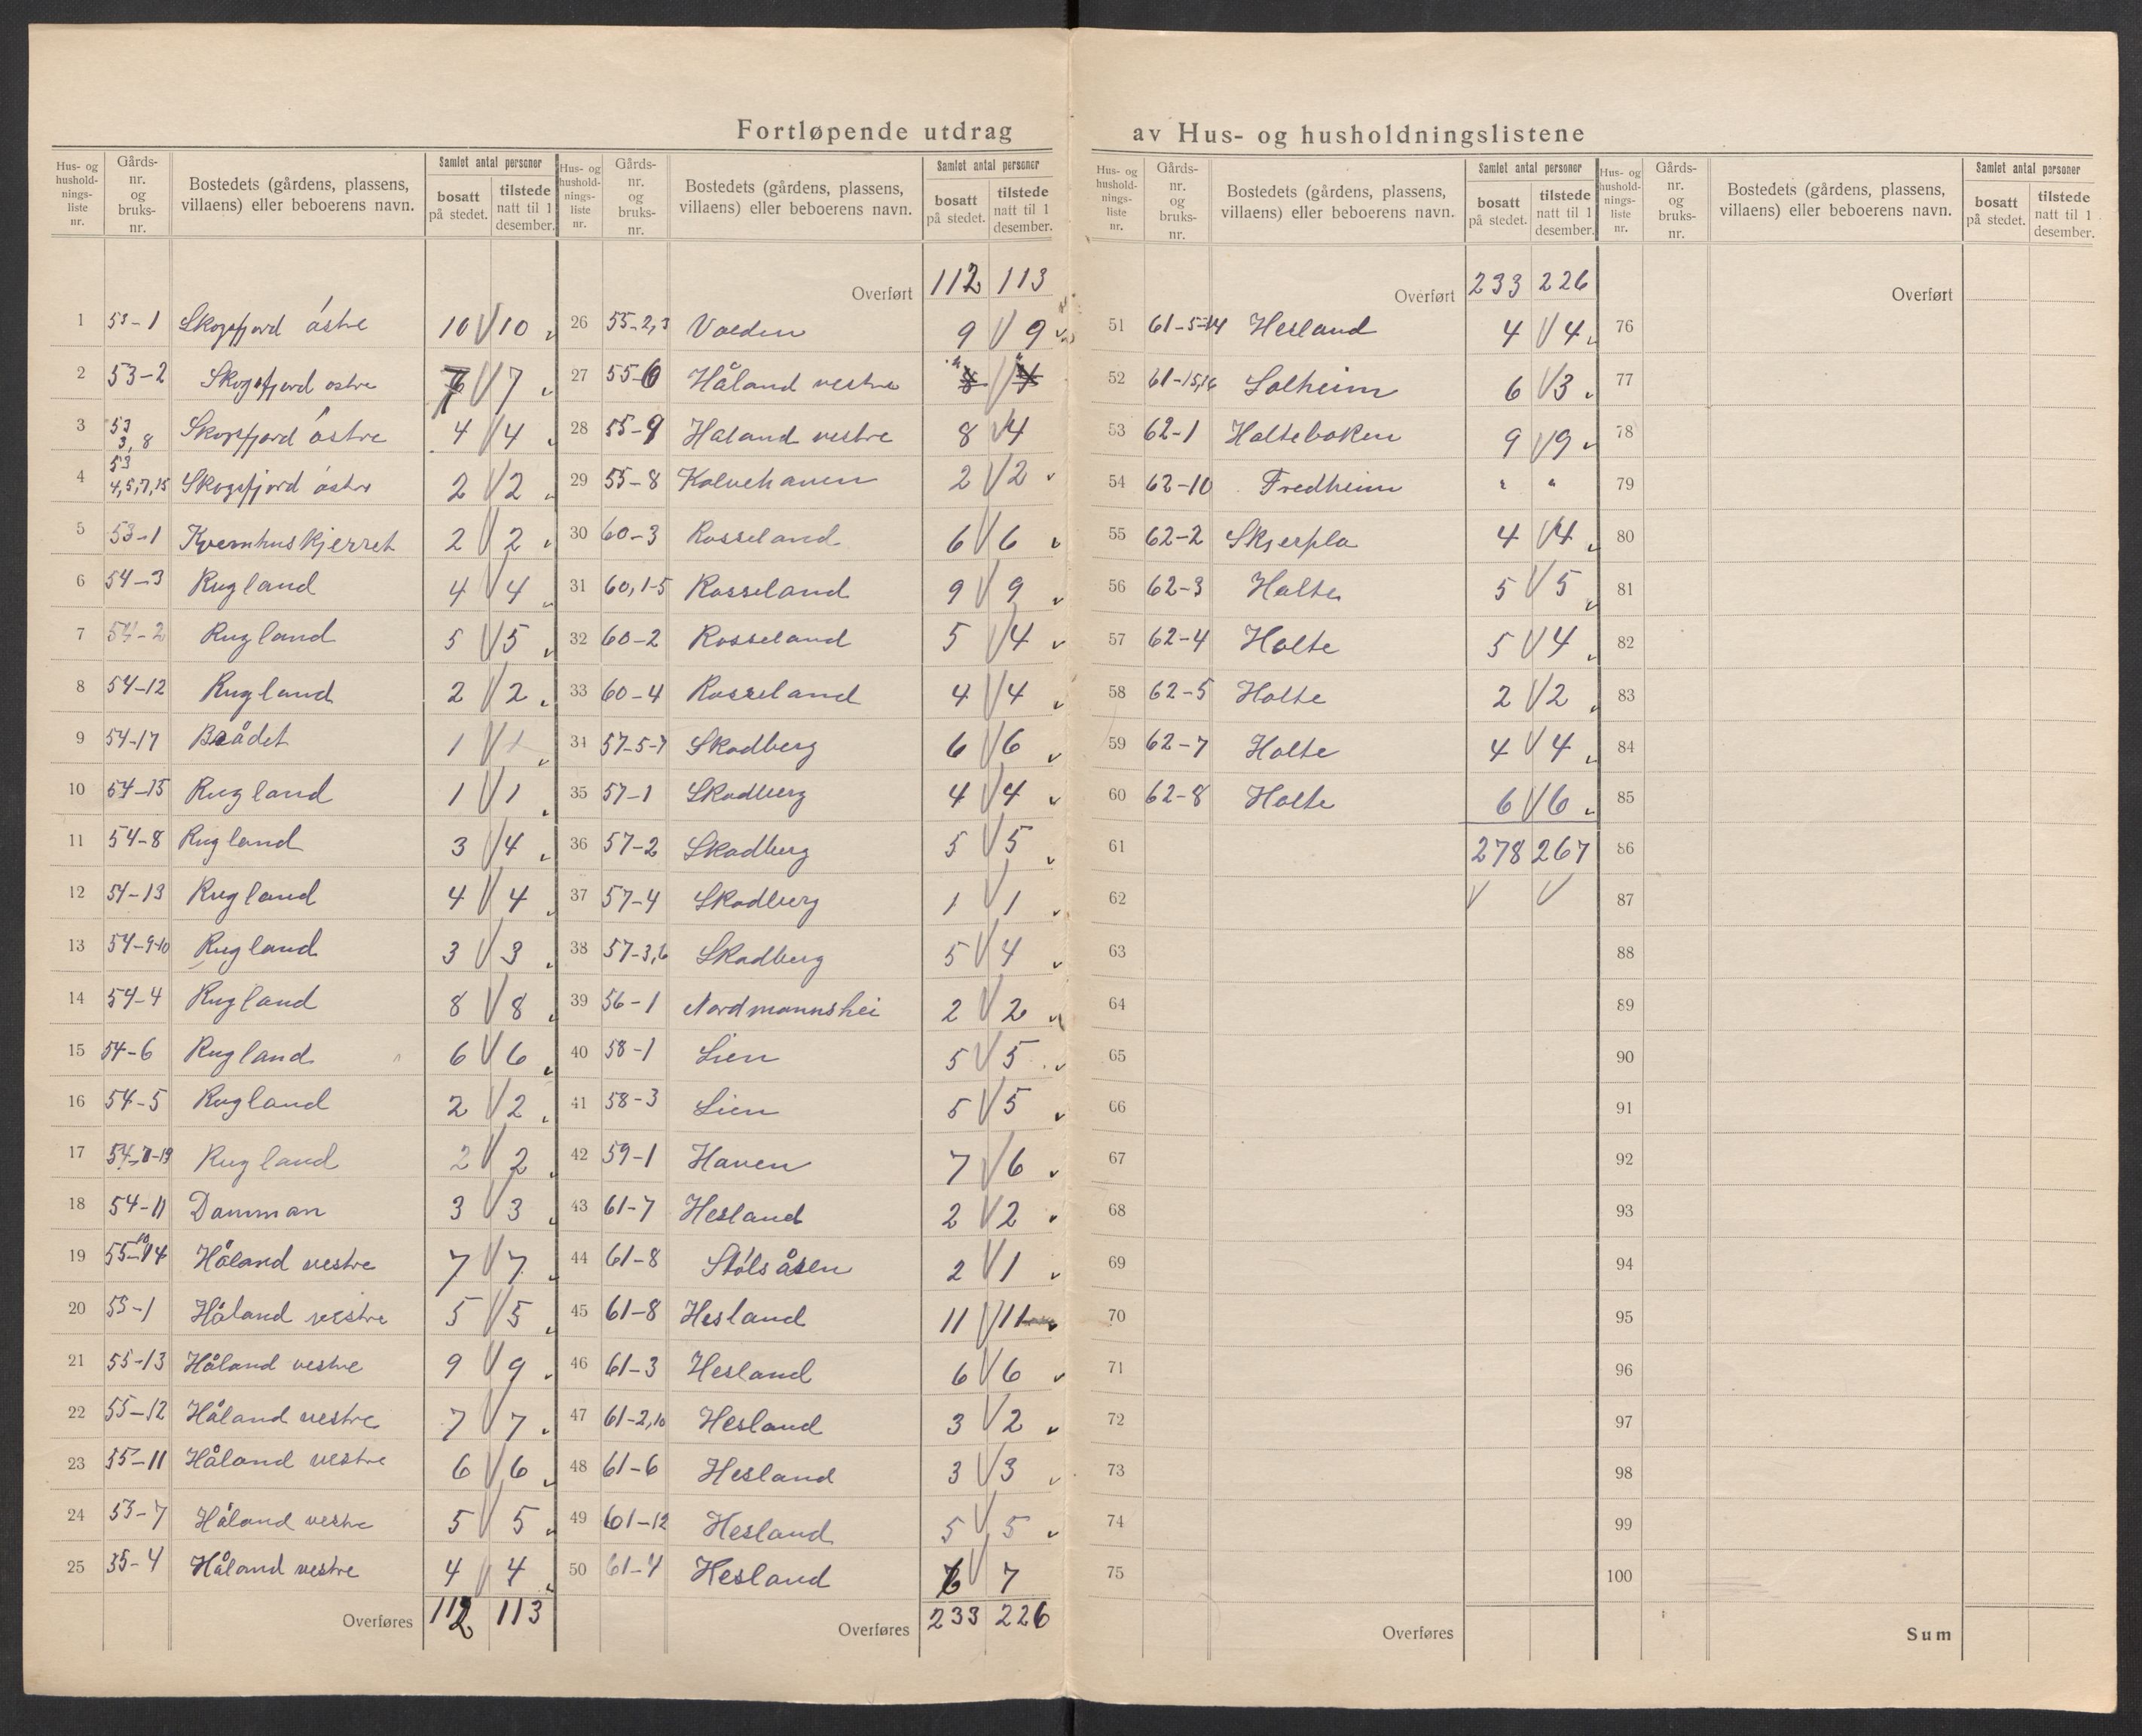 Fortløpende utdrag av Hus- og husholdningslistene
Hus- og husholdnings-liste nr. Gårds-nr. og bruks-nr. Bostedets (gårdens, plassens, villaens) eller beboerens navn. Samlet antal personer bosatt på stedet. tilstede natt til 1 desember.
1 53-1 Skogsfjord østre 10 10
2 53-2 Skogsfjord østre 7 7
3 53 3, 8 Skogsfjord østre 4 4
4 53 4,5,7,15 Skogsfjord østre 2 2
5 53-1 Kvernhuskjerret 2 2
6 54-3 Rugland 4 4
7 54-2 Rugland 5 5
8 54-12 Rugland 2 2
9 54-17 Brådet 1 1
10 54-15 Rugland 1 1
11 54-8 Rugland 3 4
12 54-13 Rugland 4 4
13 54-9-10 Rugland 3 3
14 54-4 Rugland 8 8
15 54-6 Rugland 6 6
16 54-5 Rugland 2 2
17 54-7-19 Rugland 2 2
18 54-11 Damman 3 3
19 55-10 14 Håland vestre 7 7
20 55-1 Håland vestre 5 5
21 55-13 Håland vestre 9 9
22 55-12 Håland vestre 7 7
23 55-11 Håland vestre 6 6
24 55-7 Håland vestre 5 5
25 55-4 Håland vestre 4 4
Overføres 112 113
Hus- og husholdnings-liste nr. Gårds-nr. og bruks-nr. Bostedets (gårdens, plassens, villaens) eller beboerens navn. Samlet antal personer bosatt på stedet. tilstede natt til 1 desember.
Overført 112 113
26 55-2,3 Volden 9 9
27 55-6 Håland vestre " "
28 55-9 Håland vestre 8 4
29 55-8 Kalvehaven 2 2
30 60-3 Rosseland 6 6
31 60,1-5 Rosseland 9 9
32 60-2 Rosseland 5 4
33 60-4 Rosseland 4 4
34 57-5-7 Skadberg 6 6
35 57-1 Skadberg 4 4
36 57-2 Skadberg 5 5
37 57-4 Skadberg 1 1
38 57-3,6 Skadberg 5 4
39 56-1 Nordmannshei 2 2
40 58-1 Lien 5 5
41 58-3 Lien 5 5
42 59-1 Haven 7 6
43 61-7 Hesland 2 2
44 61-8 Stølsåsen 2 1
45 61-8 Hesland 11 11
46 61-3 Hesland 6 6
47 61-2,10 Hesland 3 2
48 61-6 Hesland 3 3
49 61-12 Hesland 5 5
50 61-4 Hesland 7
Overføres 233 226
Hus- og husholdnings-liste nr. Gårds-nr. og bruks-nr. Bostedets (gårdens, plassens, villaens) eller beboerens navn. Samlet antal personer bosatt på stedet. tilstede natt til 1 desember.
Overført 233 226
51 61-5-14 Hesland 4 4
52 61-15,16 Solheim 6 3
53 62-1 Holtebakken 9 9
54 62-10 Fredheim " "
55 62-2 Skjerpla 4 4
56 62-3 Holte 5 5
57 62-4 Holte 5 4
58 62-5 Holte 2 2
59 62-7 Holte 4 4
60 62-8 Holte 6 6
61 278 267
62
63
64
65
66
67
68
69
70
71
72
73
74
75
Overføres
Hus- og husholdnings-liste nr. Gårds-nr. og bruks-nr. Bostedets (gårdens, plassens, villaens) eller beboerens navn. Samlet antal personer bosatt på stedet. tilstede natt til 1 desember.
Overført
76
77
78
79
80
81
82
83
84
85
86
87
88
89
90
91
92
93
94
95
96
97
98
99
100
Sum